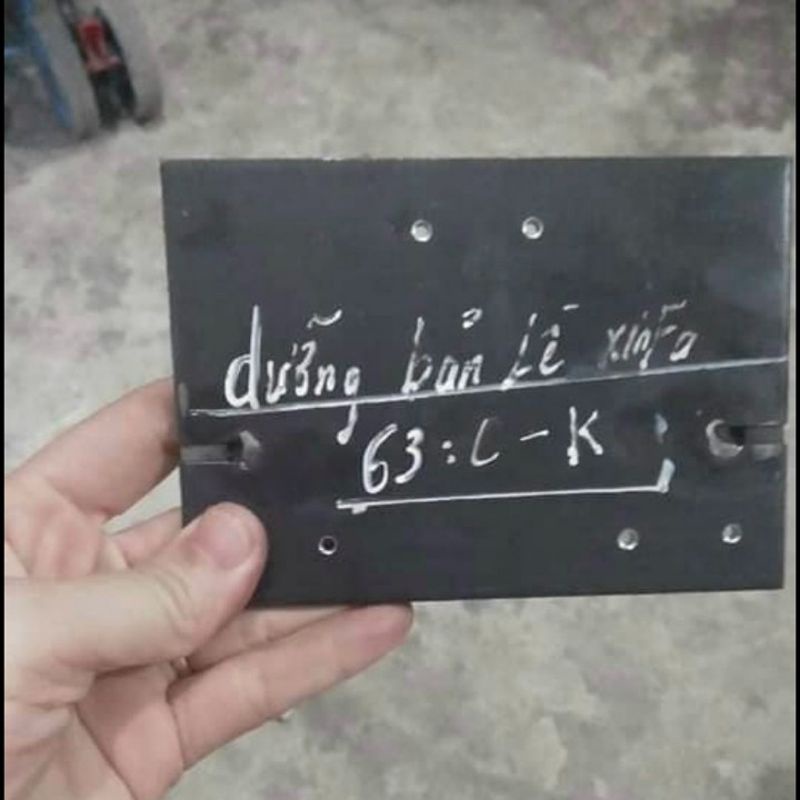 dưỡng bản lề xinfa
63: C - K